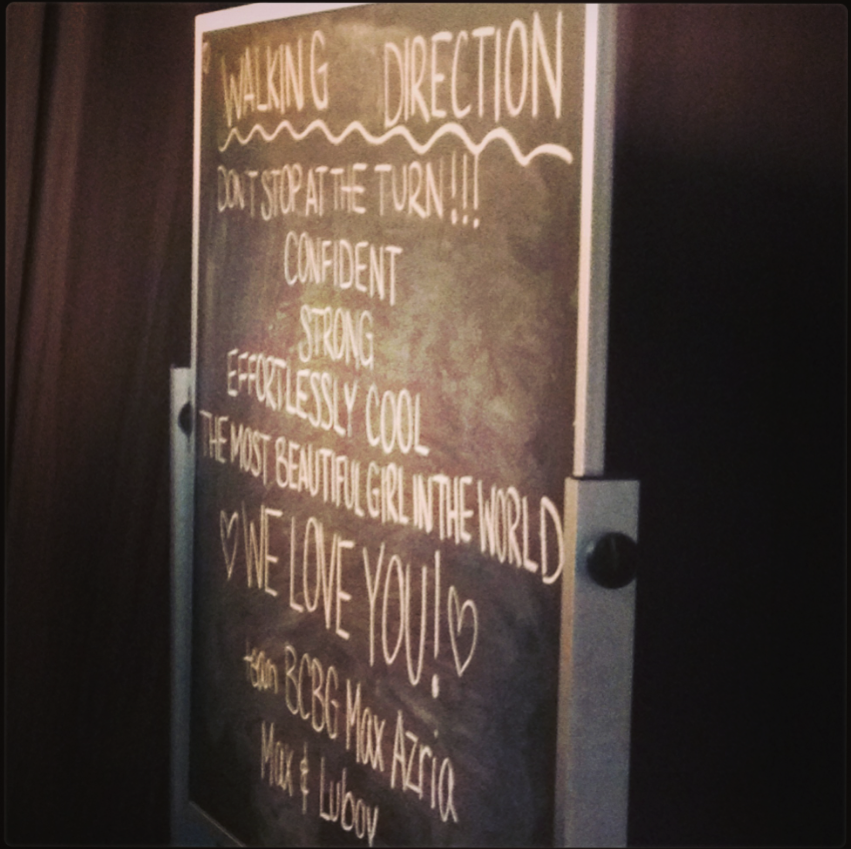 WALKING DIRECTION
DON'T STOP AT THE TURN!!!
CONFIDENT
STRONG
EFFORTLESSLY COOL
THE MOST BEAUTIFUL GIRL IN THE WORLD
♡ WE LOVE YOU! ♡
team BCBG Max Azria
Max & Lubov